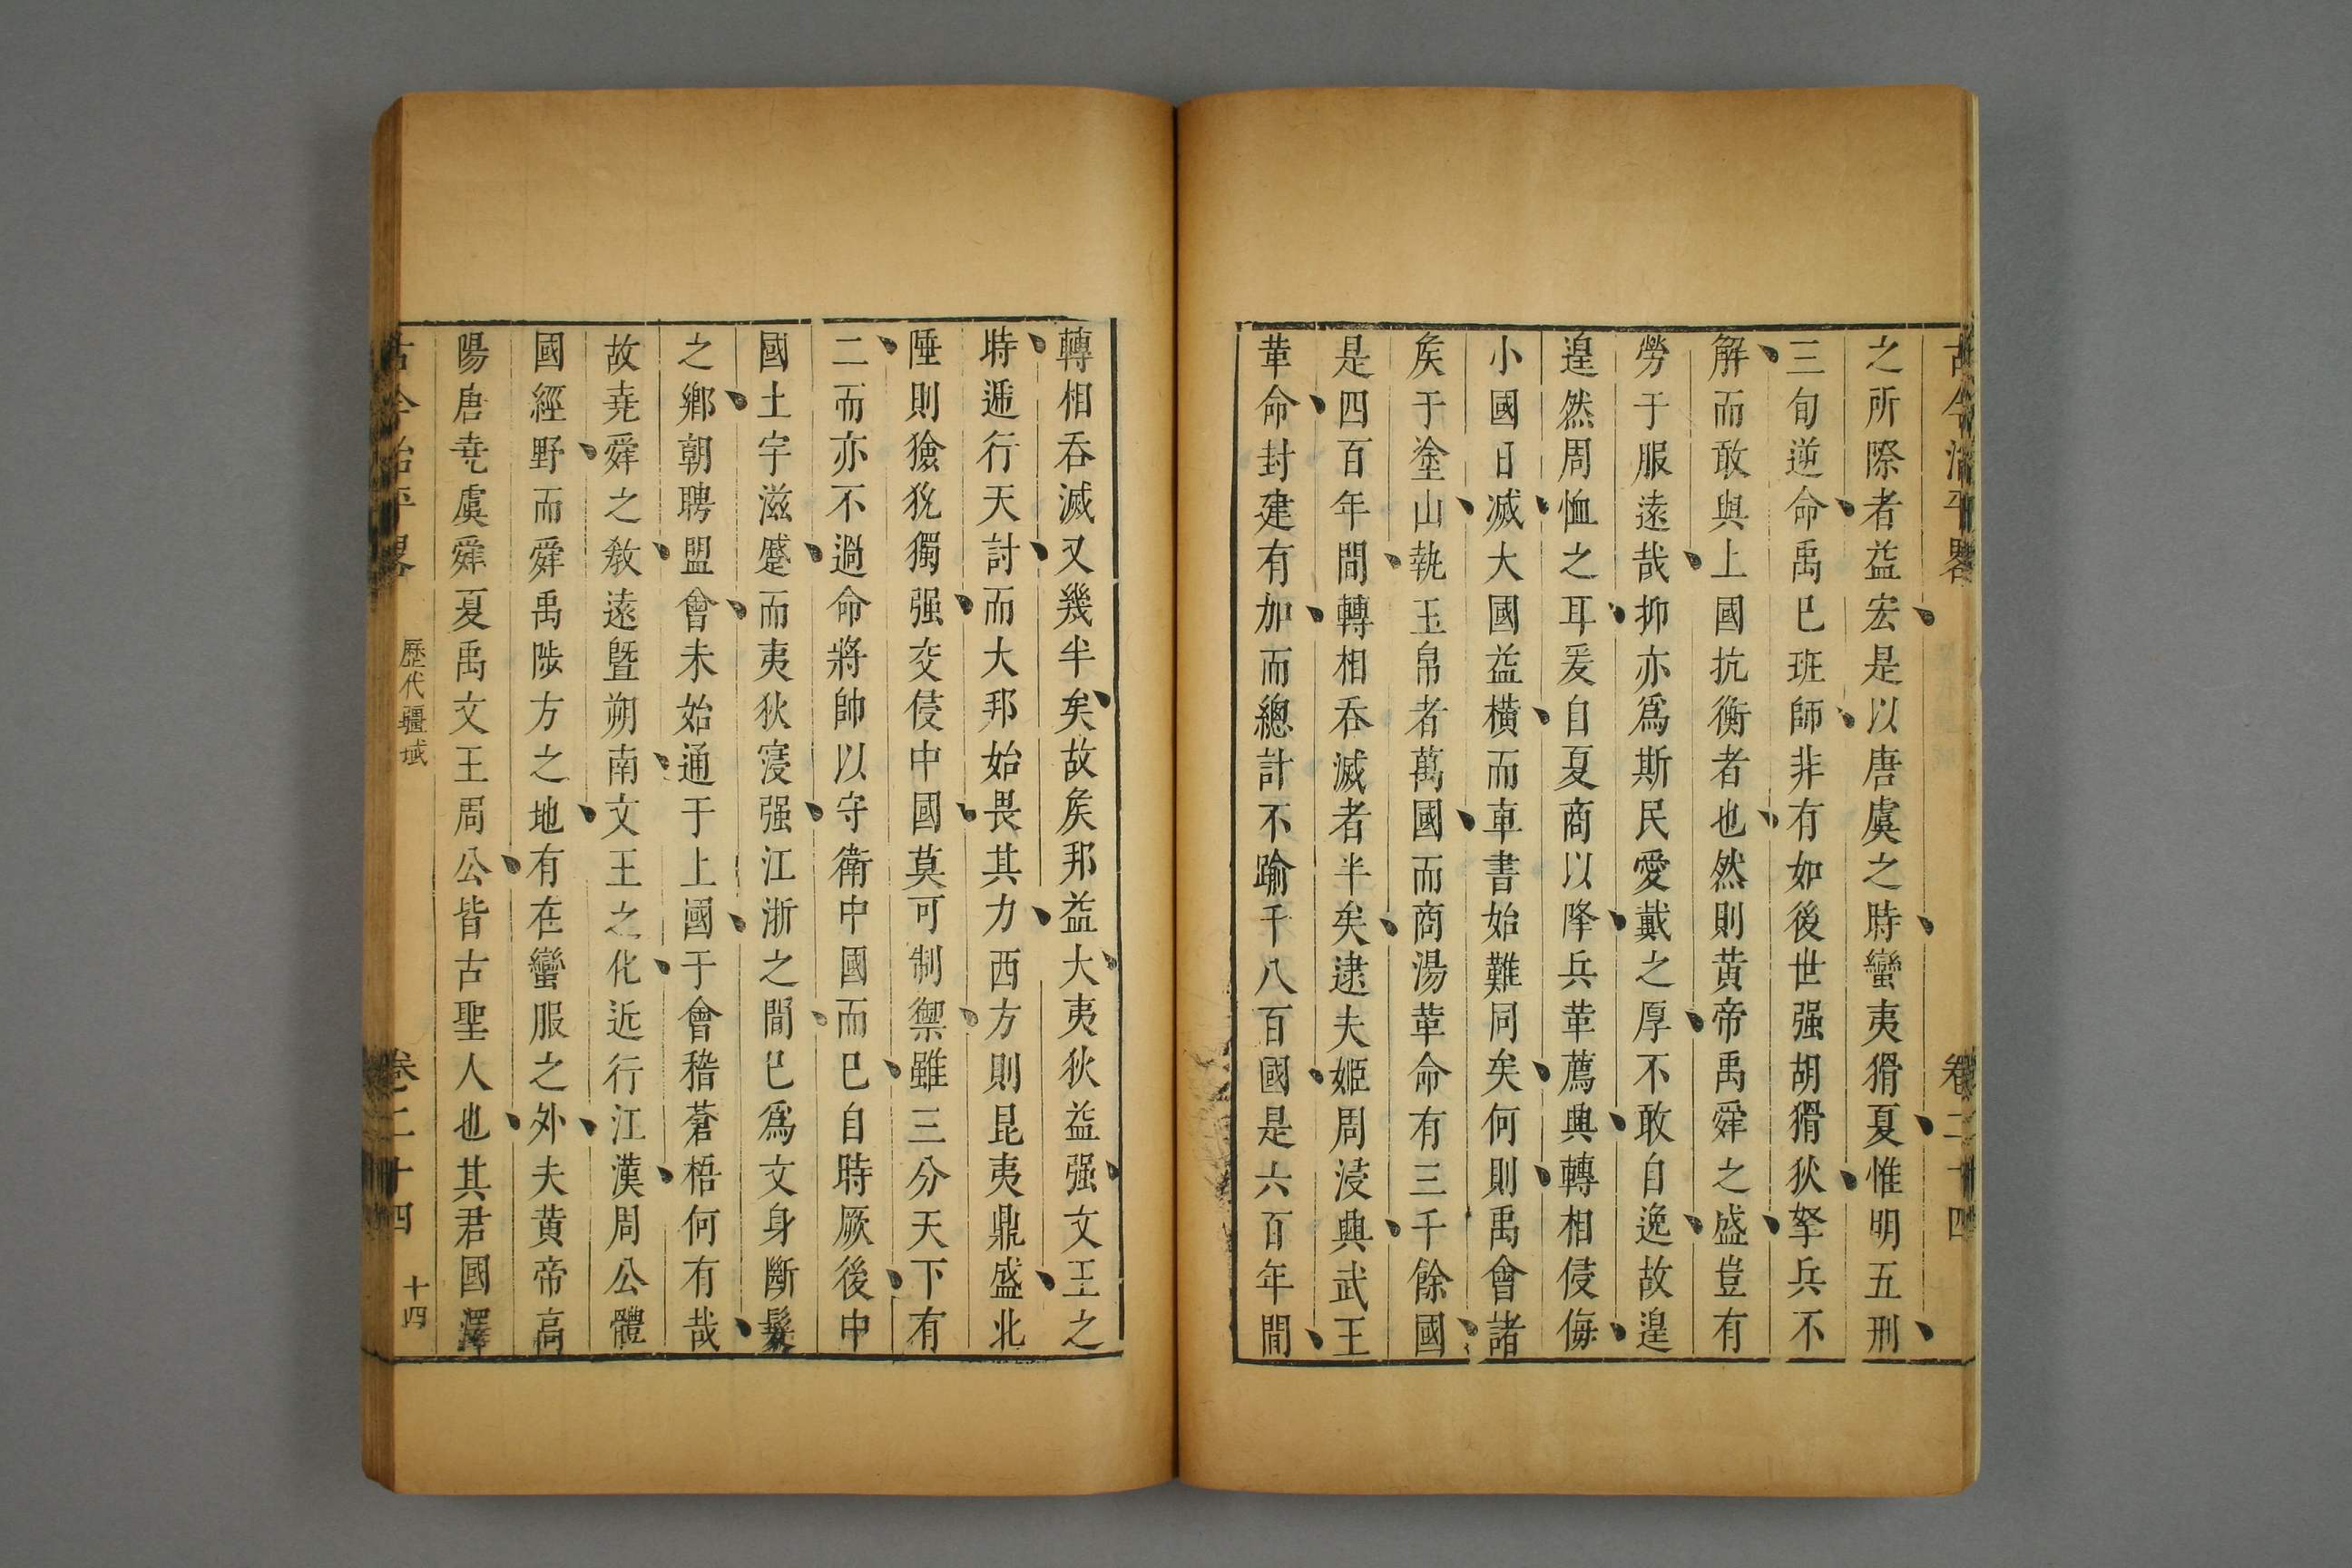 古今治平畧 卷二十四
之所際者益宏是以唐虞之時蠻夷猾夏惟明五刑
三旬逆命禹已班師非有如後世强胡猾狄拏兵不
解而敢與上國抗衡者也然則黄帝禹舜之盛豈有
勞于服遠哉抑亦爲斯民愛戴之厚不敢自逸故遑
遑然周恤之耳爰自夏商以降兵革薦興轉相侵侮
小國日滅大國益橫而車書始難同矣何則禹會諸
矦于塗山執玉帛者萬國而商湯革命有三千餘國
是四百年間轉相吞滅者半矣逮夫姬周浸興武王
革命封建有加而總計不踰千八百國是六百年間
轉相吞滅又幾半矣故矦邦益大夷狄益强文王之
時遞行天討而大邦始畏其力西方則昆夷鼎盛北
陲則獫狁獨强交侵中國莫可制禦雖三分天下有
二而亦不過命將帥以守衛中國而已自時厥後中
國土宇滋蹙而夷狄寖强江浙之間已爲文身斷髮
之鄉朝聘盟會未始通于上國于會稽蒼梧何有哉
故堯舜之敎遠曁朔南文王之化近行江漢周公體
國經野而舜禹陟方之地有在蠻服之外夫黄帝高
陽唐堯虞舜夏禹文王周公皆古聖人也其君國澤
古今治平畧 歷代疆域 卷二十四 十四